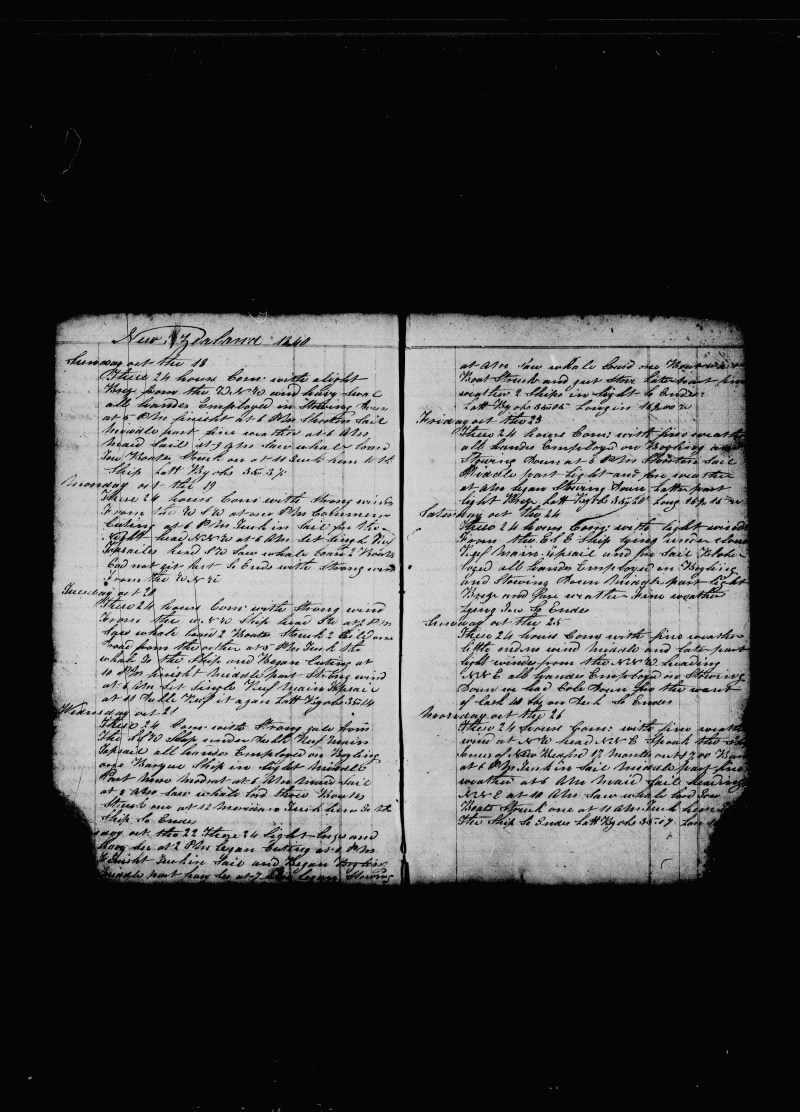 New Zealand 1840
Sunday oct the 18
These 24 hours Com: with a light
Breze from the W N W and havy Sea
all handes Employed in Stowing Down
at 5 P M finisht at 6 P M Shorten Sail
middle part fine weather at 6 A M
maid Sail at 9 A M Saw whale lowrd
Boates Struck on at 11 Tuck him to the
Ship Latt By obs 35 37
Monday oct the 19
These 24 hours Com with Strong winds
From the W S W at one P M Comenc
Cuting at 6 P M Tuck in Sail for the
Night head N N W at 6 A M let
Topsailes head S W Saw whale Lowrd 2 Boates
Cod not git fast So Ends with Strong wind
From the W N W
Tuesday oct 20
These 24 hours Com: with Strong wind
From the W N W Ship head S W at 2 P M
Saw whale Lowrd 2 Boates Struck 2
from the other at 5 P M Tuck the
whale To the Ship and Began Cuting at
10 P M finisht middle part Strong wind
at 6 A M Set Single Reef main Topsail
at 11 Dubll Reef it agane Latt By obs 35-14
Wednsday oct 21
These 24 Com: with Strong gale from
The S S W Ship under Dubll Reef main
Topsail all handes Employed on Boyling
one Barque Ship in Sight middle
Part More modrat at 6 A M maid Sail
at 8 A M Saw whale Lord three Boates
Struck one at 12 Tuck him To the
Ship So Endes
oct the 22 These 24 light Breze and
havy Sea at 2 P M began Cuting at 6 P M
finisht Tuck in Sail and Began Boyling
Middle part havy Sea at 7 A M began Stowing
at A M Saw whale Lowrd one
Boat Struck and got Stove Later part fine
weather 2 Ships in Sight So Endes
Latt By obs 35-05 Longin 169,00 W
Friday oct the 23
These 24 hours Com: with fine weather
all handes Employed on Boyling and
Stowing Down at 6 P M Shorten Sail
Middle part Light and fine weather
at A M began Stowing Down Latter part
light Breze Latt By obs 35,20 Long 169,15 W
Saterday oct the 24
These 24 hours Com: with light winds
From the E S E Ship lying under close
Reef Main Topsail and for Sail
all handes Employed on Boyling
and Stowing Down Middle part Light
Breze and fine weather Fine weather
Lying Too So Endes
Sunday oct the 25
These 24 hours Com with fine weather
little or no wind middle and late part
light windes from the N N W heading
N N E all handes Employed on Stowing
Down we had Cole Down for the want
of Cask on Deck So Endes
Monday oct the 26
These 24 hours Com: with fine weather
wind at N W head N N E Spoak the
of New Bedford 17 Months out 1700 Bar
at 6 P M Tuck in Sail Middle part fine
weather at 6 A M Maid Sail heading
N N E at 10 A M Saw whale Lord Four
Boats Struck one at 11 A M Tuck him To
The Ship So Endes Latt By obs 35-07 Lon